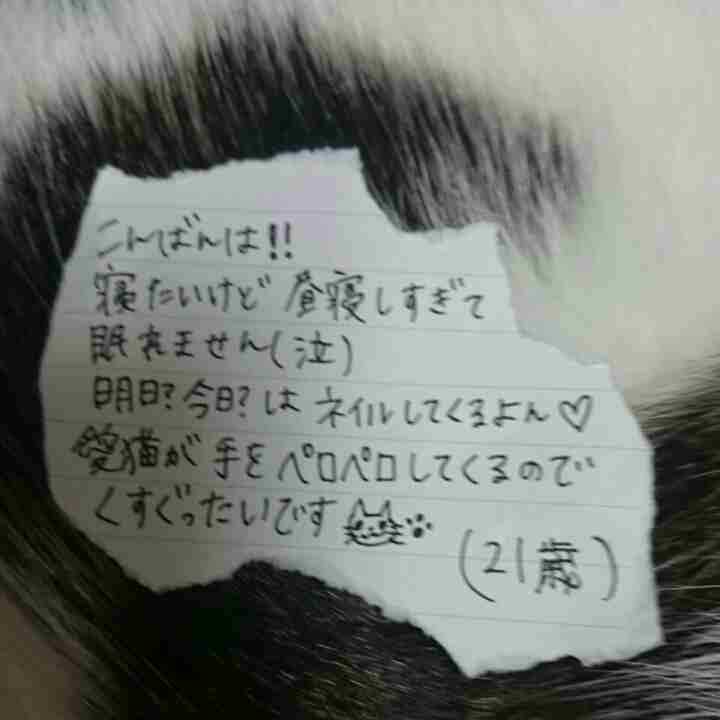 こんばんは!!
寝たいけど昼寝しすぎて
眠れません(泣)
明日?今日?はネイルしてくるよん♡
愛猫が手をペロペロしてくるので
くすぐったいです
(21歳)